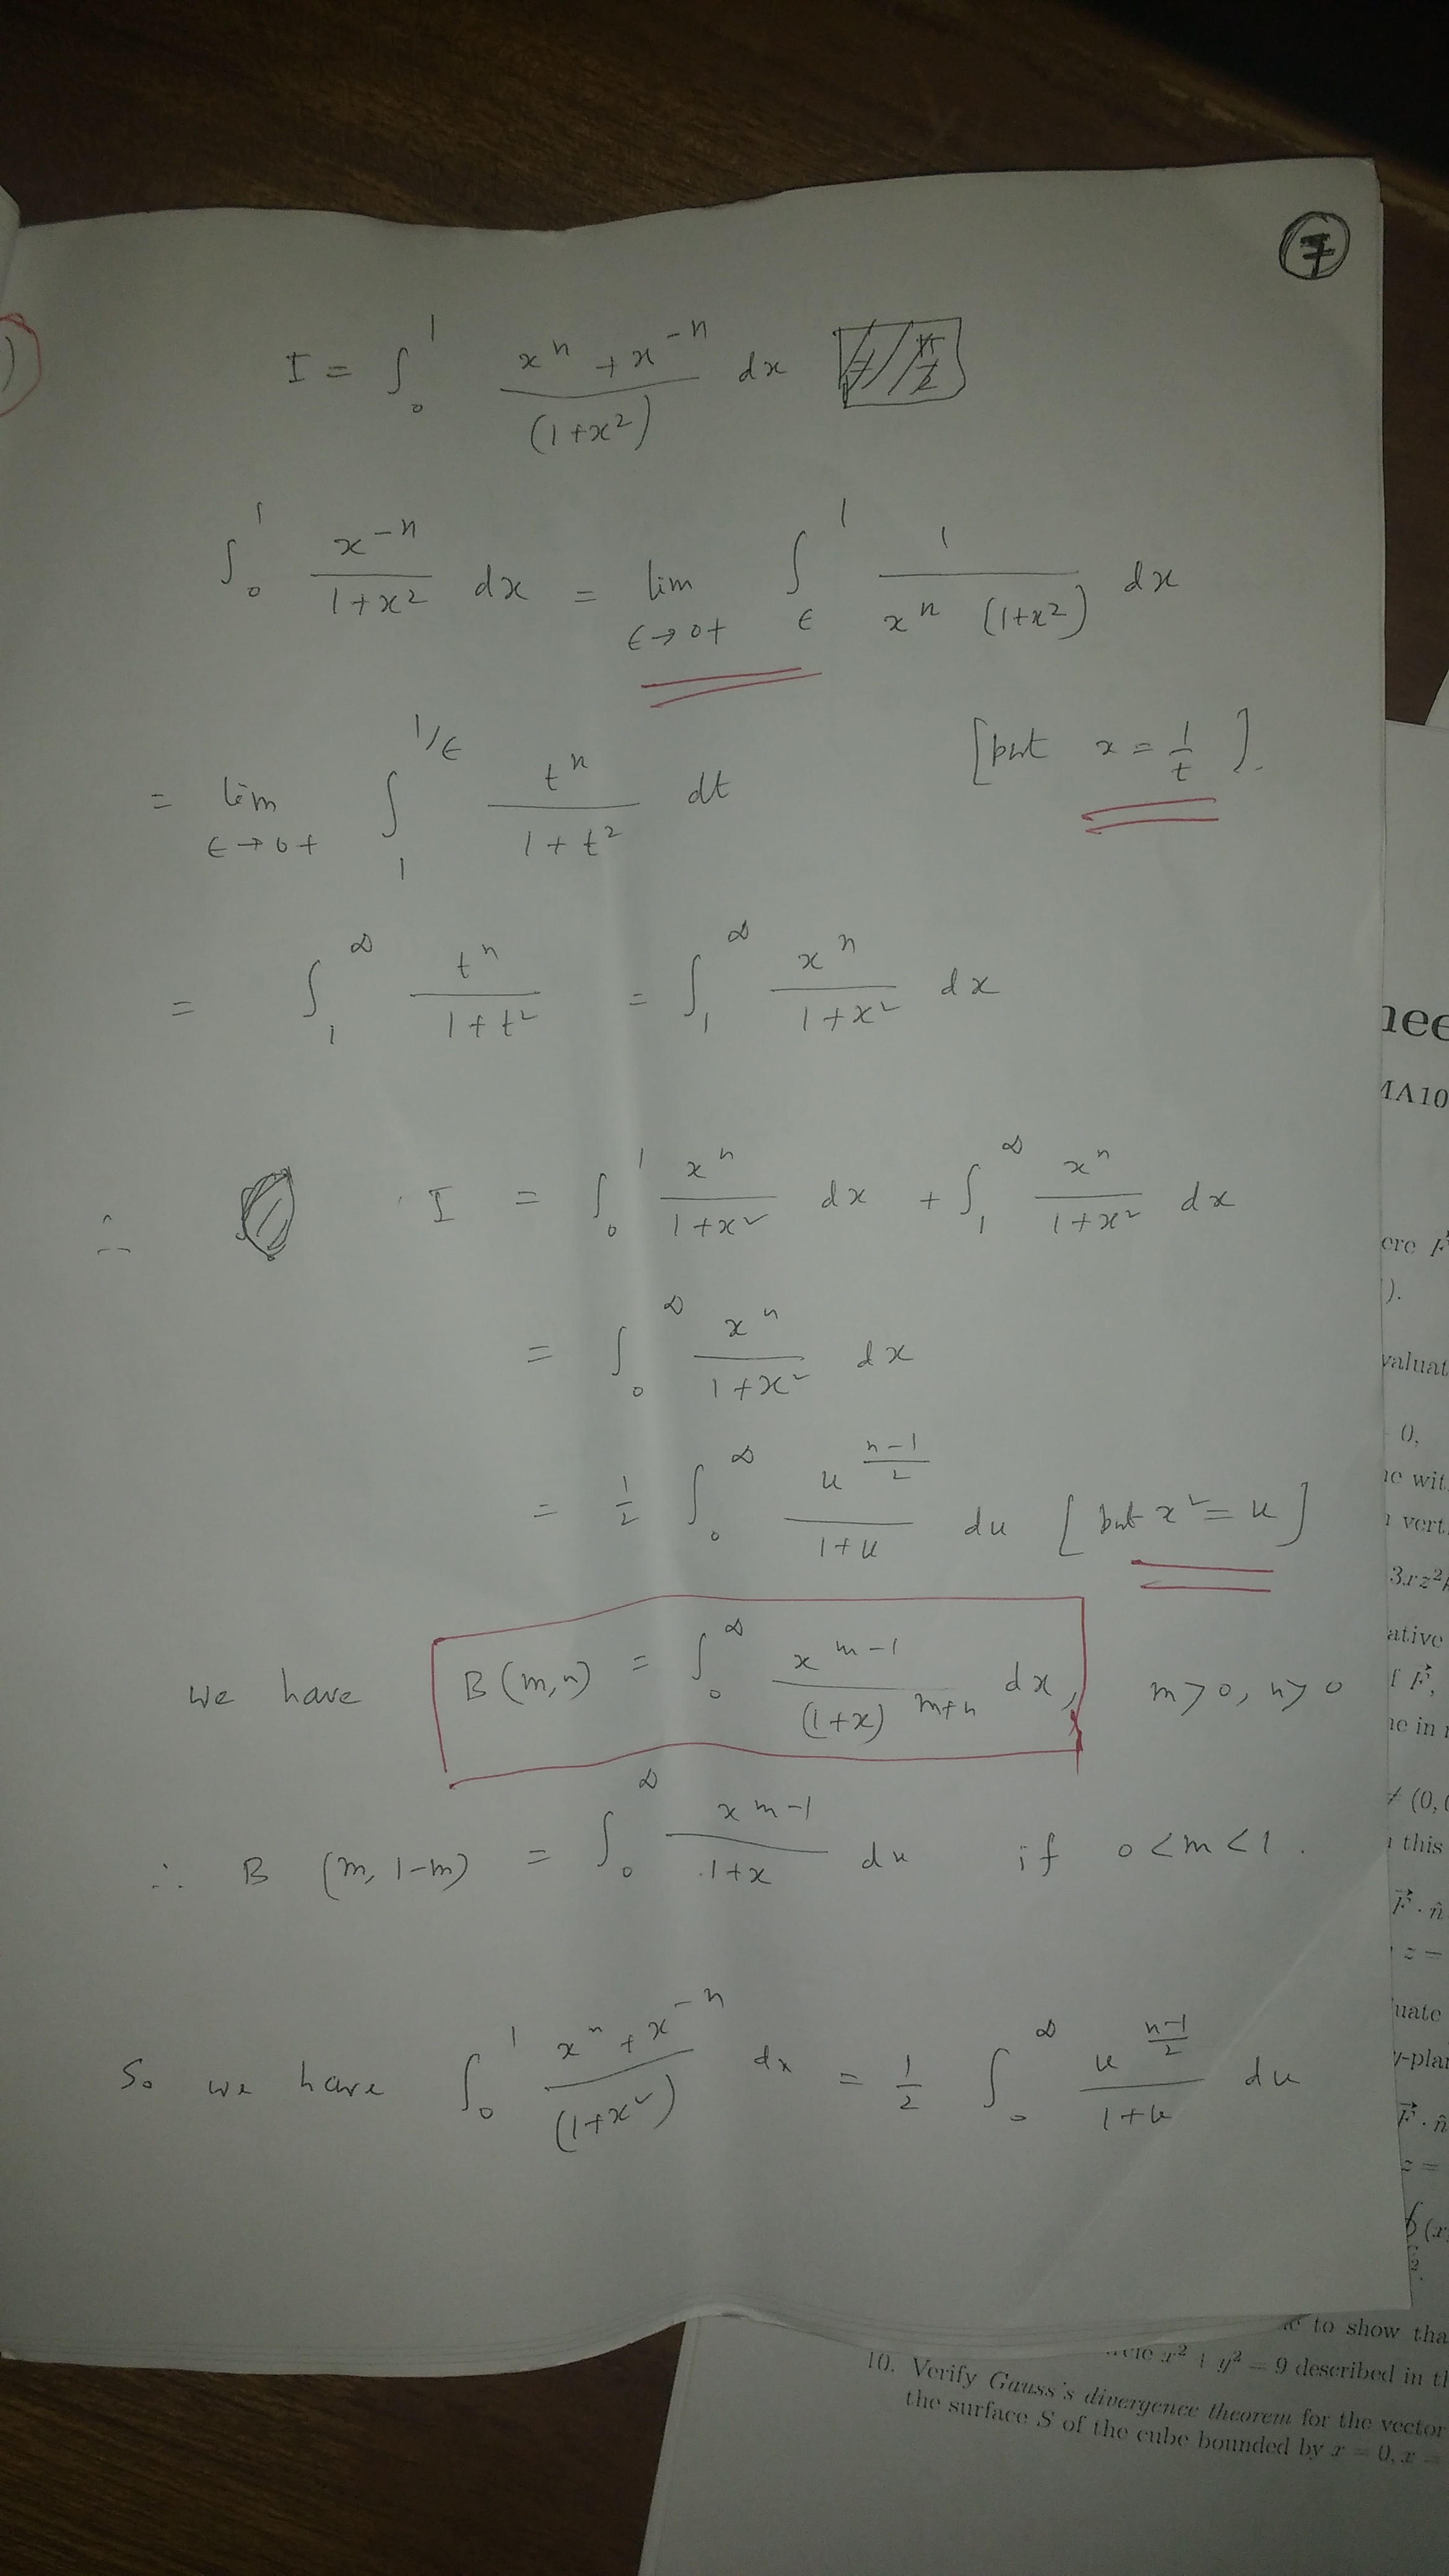 7
)
I = ∫₀¹ (xⁿ + x⁻ⁿ)/(1+x²) dx
∫₀¹ x⁻ⁿ/(1+x²) dx = lim_{ε→0+} ∫_ε¹ 1/(xⁿ (1+x²)) dx
= lim_{ε→0+} ∫₁^{1/ε} tⁿ/(1+t²) dt [put x = 1/t].
= ∫₁^∞ tⁿ/(1+t²) = ∫₁^∞ xⁿ/(1+x²) dx
∴ I = ∫₀¹ xⁿ/(1+x²) dx + ∫₁^∞ xⁿ/(1+x²) dx
= ∫₀^∞ xⁿ/(1+x²) dx
= 1/2 ∫₀^∞ u^{(n-1)/2}/(1+u) du [put x² = u]
We have B(m,n) = ∫₀^∞ x^{m-1}/(1+x)^{m+n} dx, m>0, n>0
∴ B (m, 1-m) = ∫₀^∞ x^{m-1}/(1+x) du if 0<m<1.
So we have ∫₀¹ (xⁿ + x⁻ⁿ)/(1+x²) dx = 1/2 ∫₀^∞ u^{(n-1)/2}/(1+u) du
nee
MA10
ere F
).
valuat
0,
ne wit
vert
3xz²
ative
f F⃗,
ne in
≠ (0,
this
F⃗ · n̂
z =
uate
y-plan
F⃗ · n̂
z =
∮ (x
to show tha
x² + y² = 9 described in th
10. Verify Gauss's divergence theorem for the vector
the surface S of the cube bounded by x = 0, x =